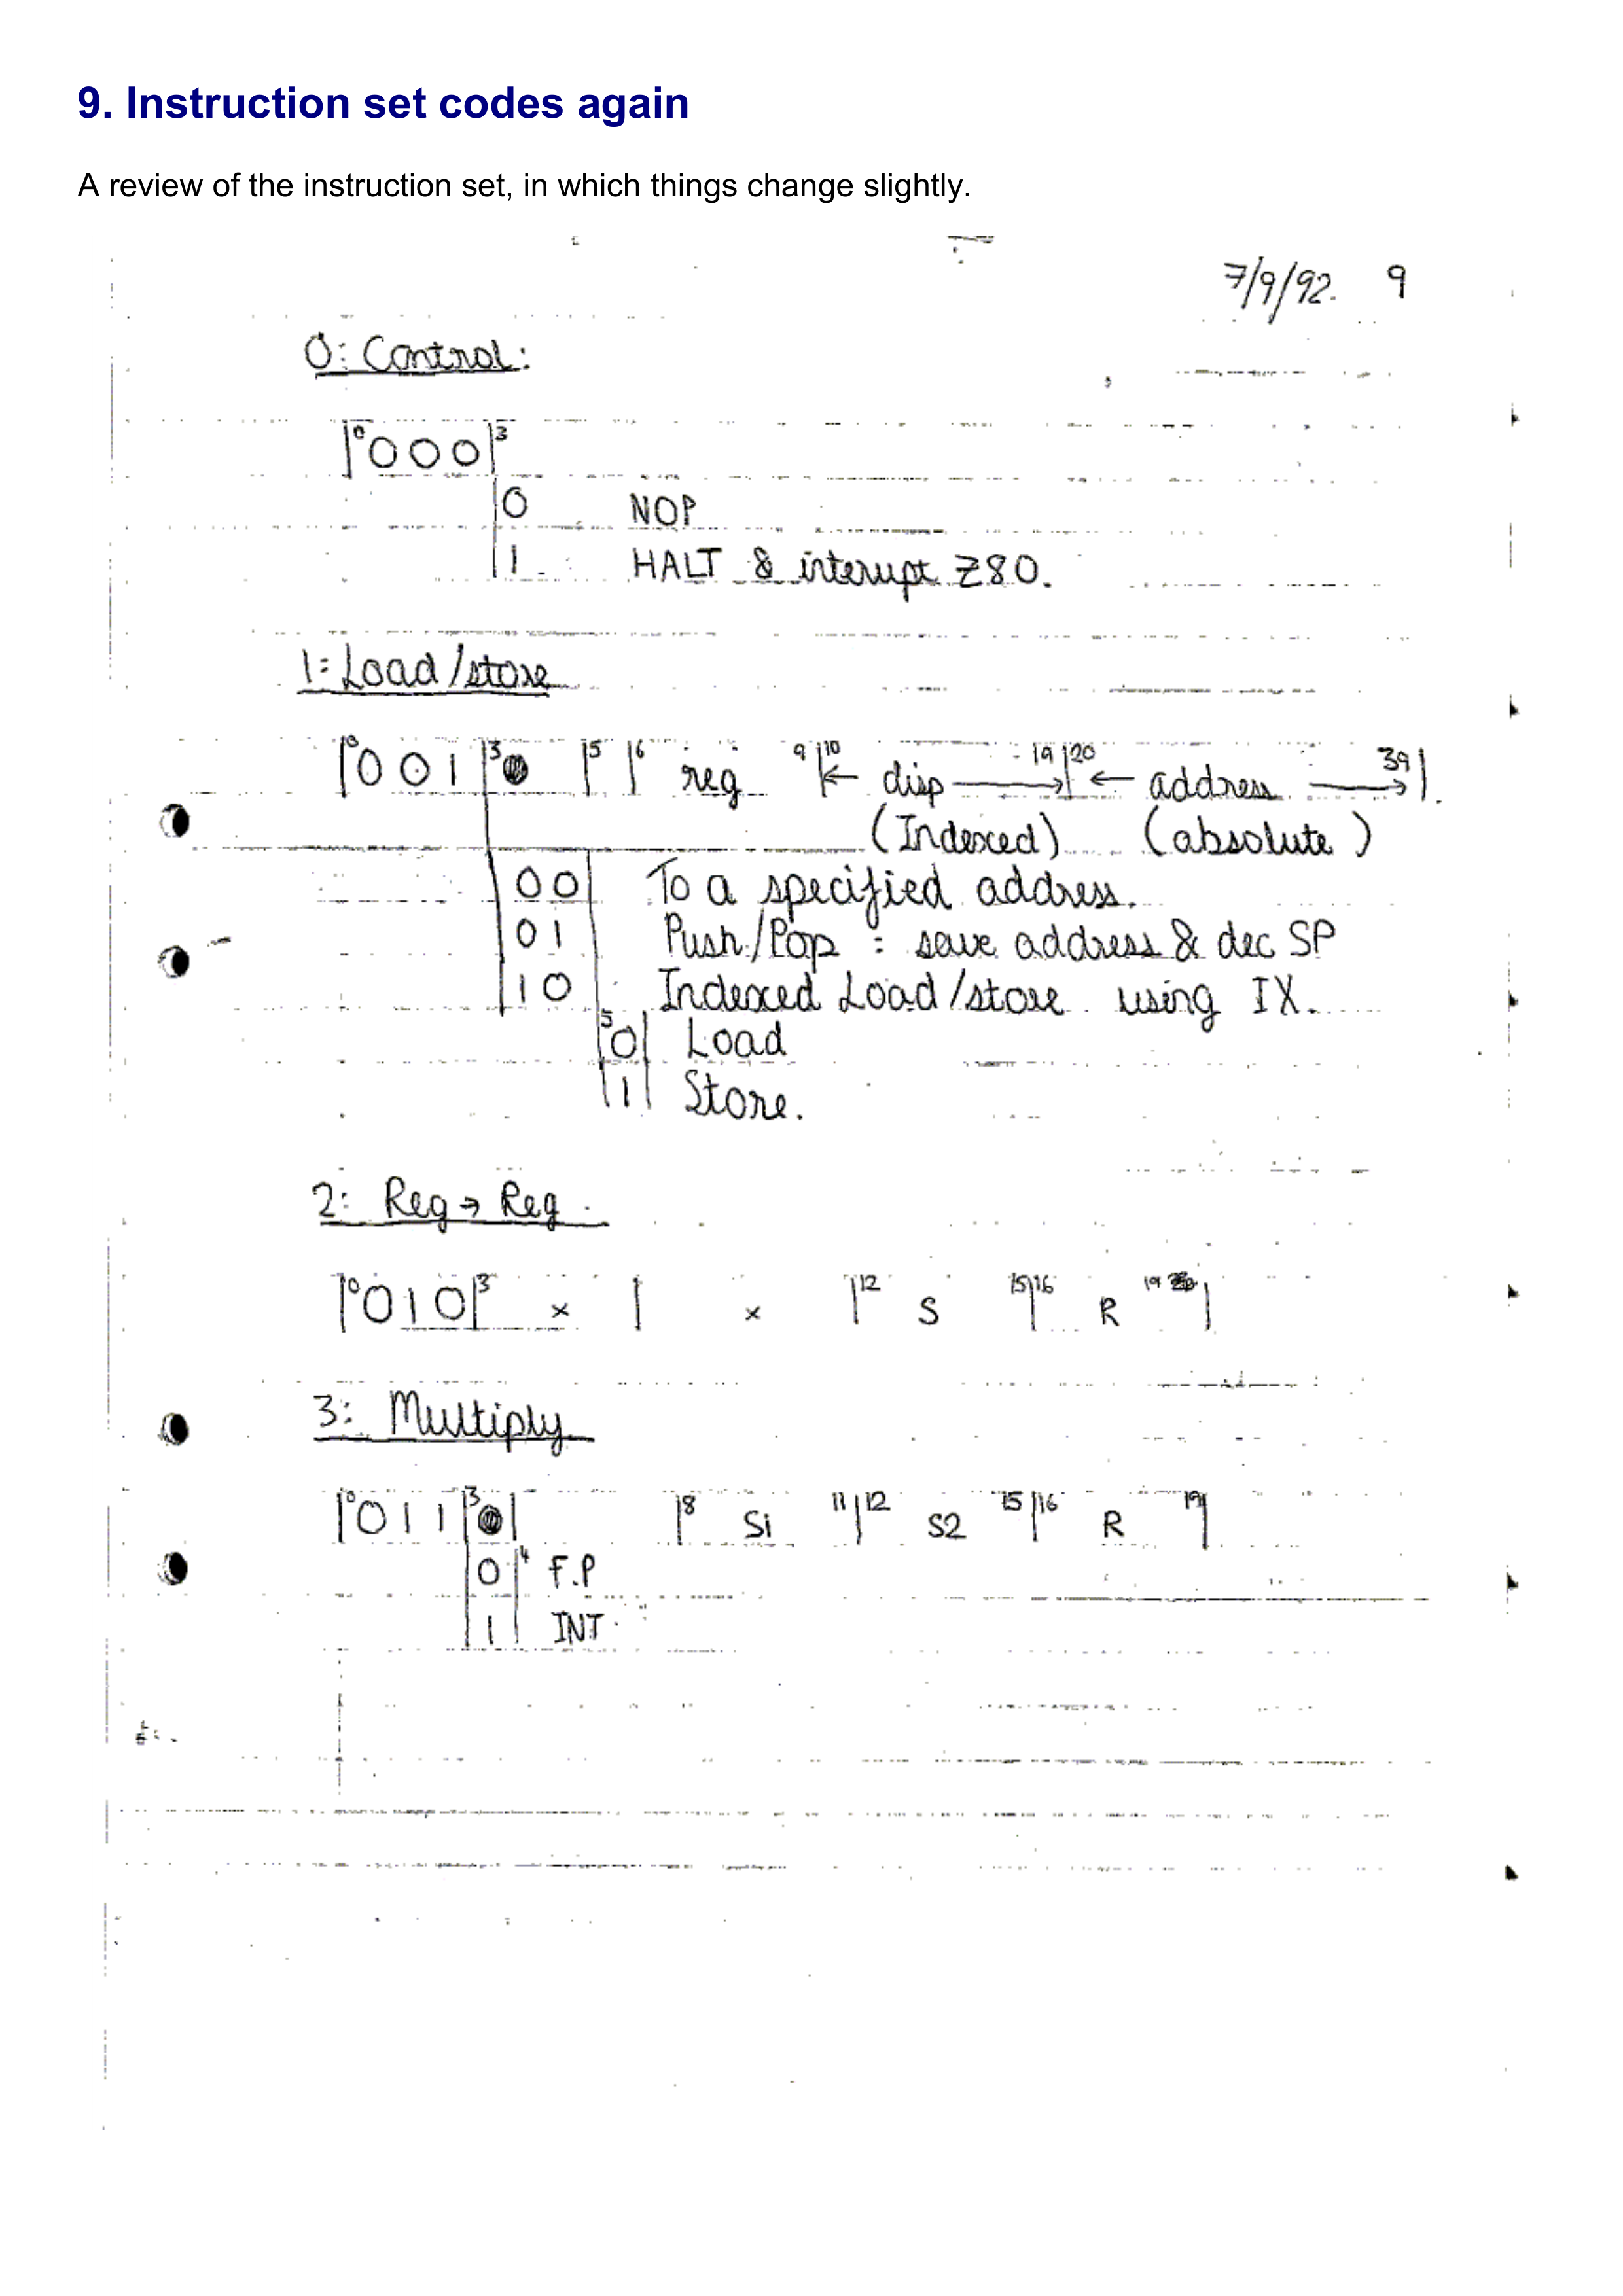 9. Instruction set codes again
A review of the instruction set, in which things change slightly.
7/9/92. 9
0: Control:
|0 000|3
0 NOP
1 HALT & interupt Z80.
1: Load/store
|0 001|3 |5 |6 reg 9|10 ← disp → 19|20 ← address → 39|.
(Indexed) (absolute)
00 To a specified address.
01 Push/Pop : save address & dec SP
10 Indexed Load/store using IX.
5 0 Load
1 Store.
2: Reg → Reg.
|0 010|3 × | × |12 S 15|16 R 19|
3: Multiply
|0 011|3 | |8 S1 11|12 S2 15|16 R 19|
0 |4 F.P
1 | INT.